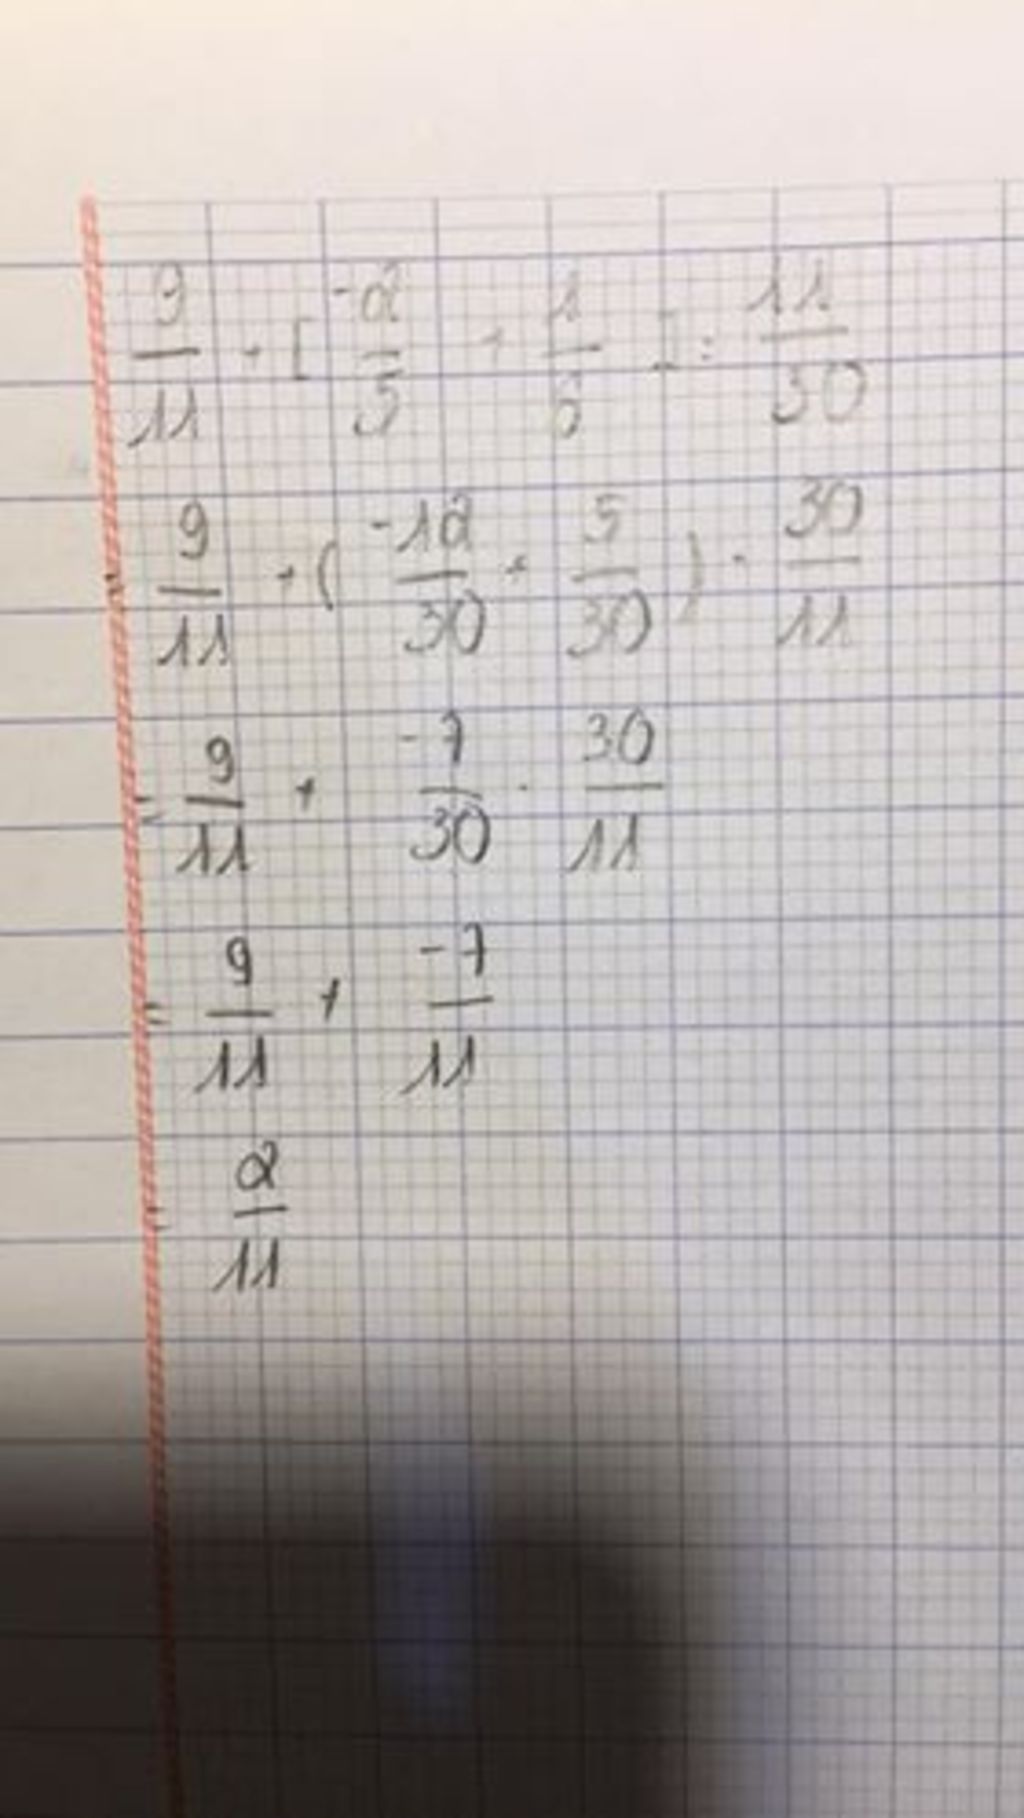 9/11 + [ -2/5 + 1/6 ] : 11/30
= 9/11 + ( -12/30 + 5/30 ) . 30/11
= 9/11 + -7/30 . 30/11
= 9/11 + -7/11
= 2/11